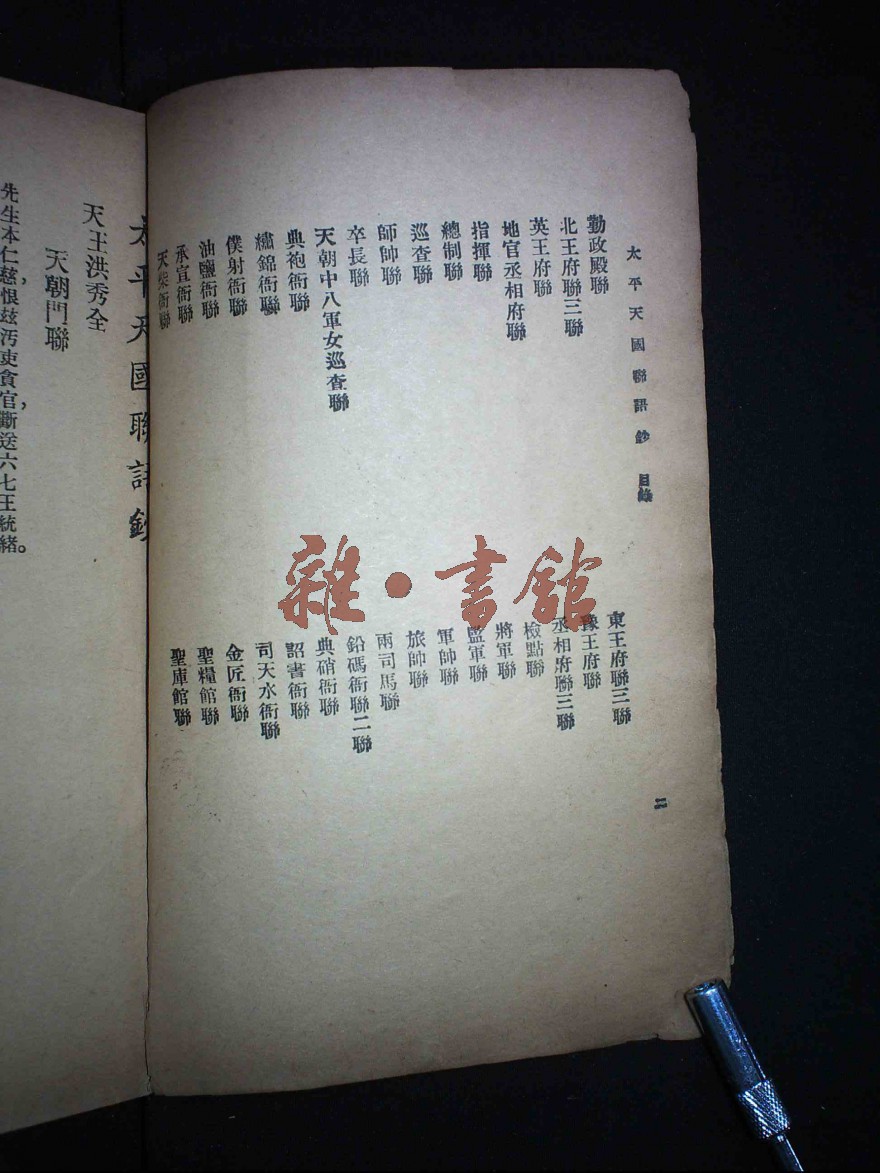 太平天國聯語鈔 目錄
二
勤政殿聯
東王府聯三聯
北王府聯三聯
豫王府聯
英王府聯
丞相府聯三聯
地官丞相府聯
檢點聯
指揮聯
將軍聯
總制聯
監軍聯
巡查聯
軍帥聯
師帥聯
旅帥聯
卒長聯
兩司馬聯
天朝中八軍女巡查聯
鉛碼衙聯二聯
典袍衙聯
典硝衙聯
繡錦衙聯
詔書衙聯
僕射衙聯
司天水衙聯
油鹽衙聯
金匠衙聯
承宣衙聯
聖糧館聯
天柴衙聯
聖庫館聯
太平天國聯語鈔
天王洪秀全
天朝門聯
先生本仁慈,恨茲汚吏貪官,斷送六七王統緒。
雜·書館